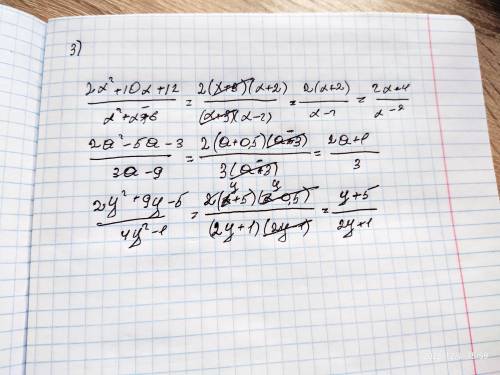 3)
(2x²+10x+12)/(x²+x-6) = (2(x+3)(x+2))/((x+3)(x-2)) = (2(x+2))/(x-2) = (2x+4)/(x-2)
(2a²-5a-3)/(3a-9) = (2(a+0,5)(a-3))/(3(a-3)) = (2a+1)/3
(2y²+9y-5)/(4y²-1) = (2(y+5)(y-0,5))/((2y+1)(2y-1)) = (y+5)/(2y+1)